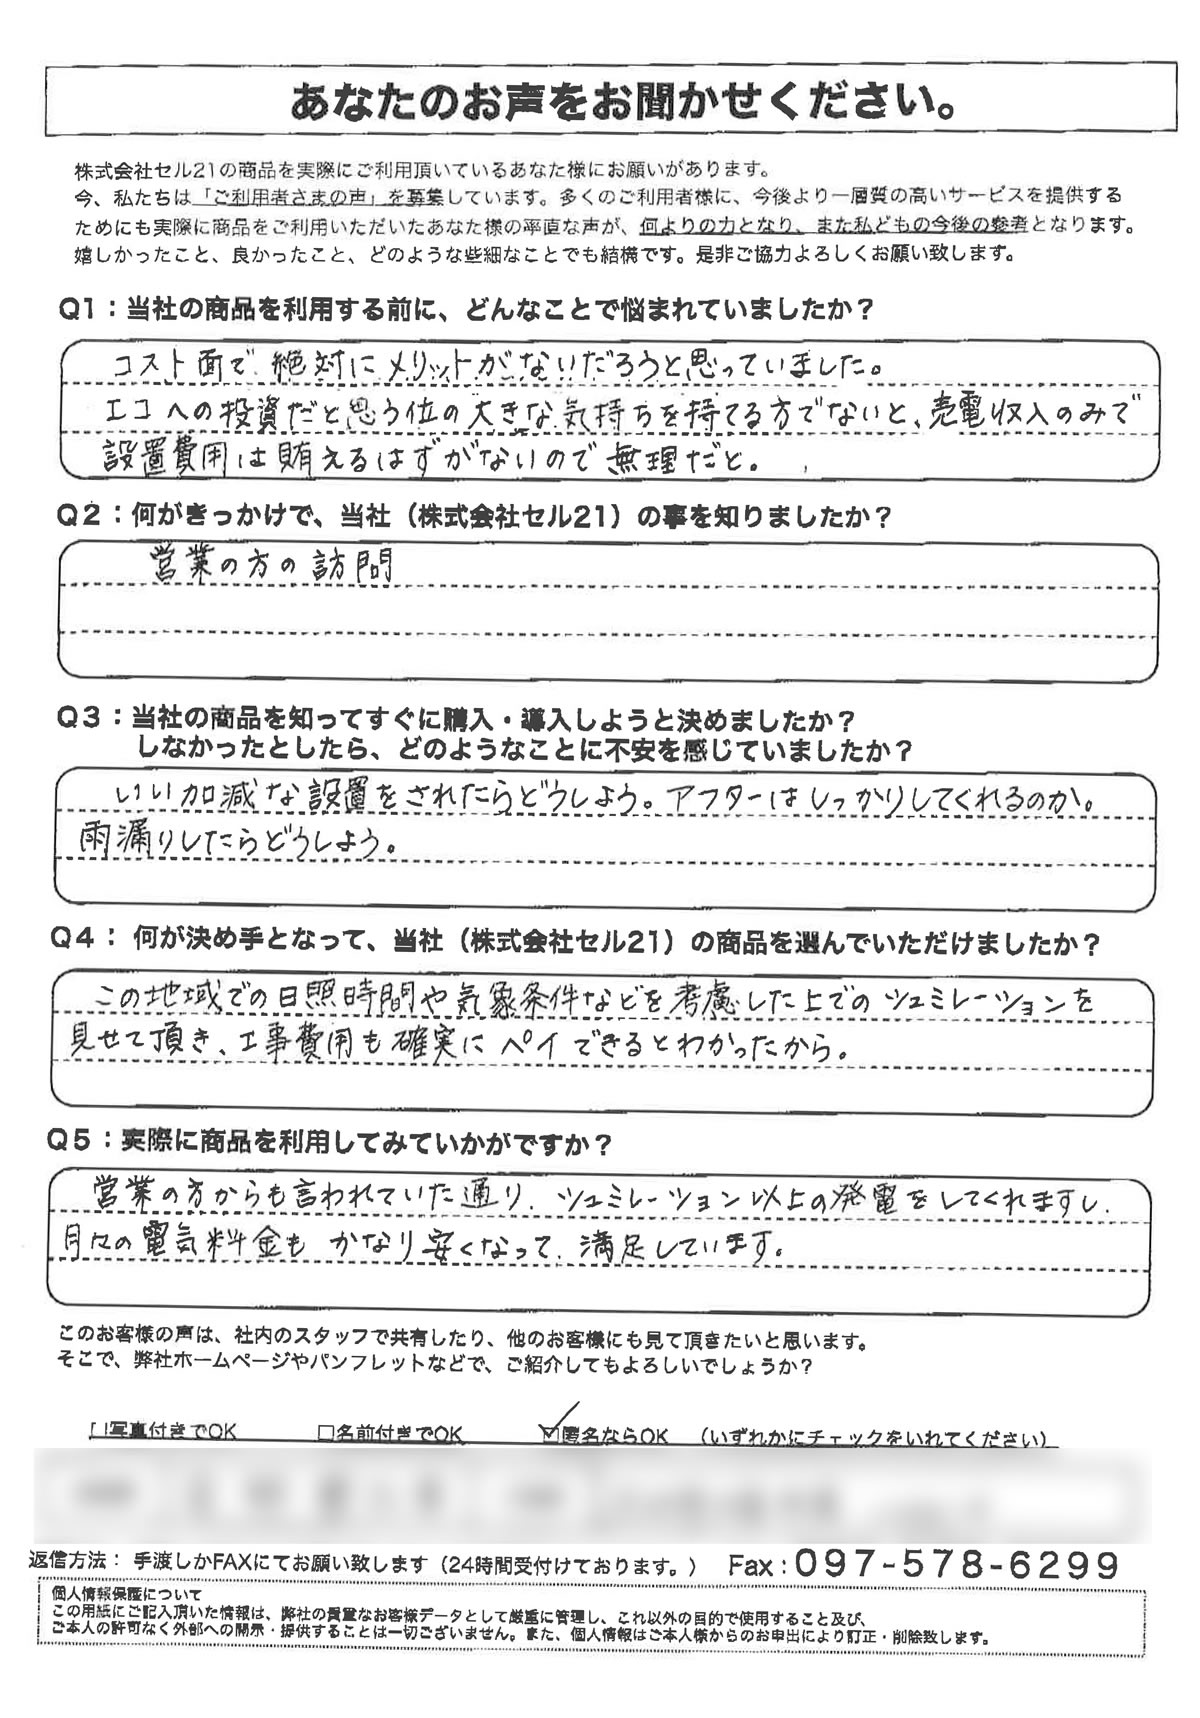 あなたのお声をお聞かせください。
株式会社セル21の商品を実際にご利用頂いているあなた様にお願いがあります。
今、私たちは「ご利用者さまの声」を募集しています。多くのご利用者様に、今後より一層質の高いサービスを提供する
ためにも実際に商品をご利用いただいたあなた様の率直な声が、何よりの力となり、また私どもの今後の参考となります。
嬉しかったこと、良かったこと、どのような些細なことでも結構です。是非ご協力よろしくお願い致します。
Q1：当社の商品を利用する前に、どんなことで悩まれていましたか？
コスト面で、絶対にメリットがないだろうと思っていました。
エコへの投資だと思う位の大きな気持ちを持てる方でないと、売電収入のみで
設置費用は賄えるはずがないので無理だと。
Q2：何がきっかけで、当社（株式会社セル21）の事を知りましたか？
営業の方の訪問
Q3：当社の商品を知ってすぐに購入・導入しようと決めましたか？
しなかったとしたら、どのようなことに不安を感じていましたか？
いい加減な設置をされたらどうしよう。アフターはしっかりしてくれるのか。
雨漏りしたらどうしよう。
Q4：何が決め手となって、当社（株式会社セル21）の商品を選んでいただけましたか？
この地域での日照時間や気象条件などを考慮した上でのシュミレーションを
見せて頂き、工事費用も確実にペイできるとわかったから。
Q5：実際に商品を利用してみていかがですか？
営業の方からも言われていた通り、シュミレーション以上の発電をしてくれますし、
月々の電気料金もかなり安くなって、満足しています。
このお客様の声は、社内のスタッフで共有したり、他のお客様にも見て頂きたいと思います。
そこで、弊社ホームページやパンフレットなどで、ご紹介してもよろしいでしょうか？
□写真付きでOK □名前付きでOK ☑匿名ならOK （いずれかにチェックをいれてください）
返信方法： 手渡しかFAXにてお願い致します（24時間受付けております。） Fax：097-578-6299
個人情報保護について
この用紙にご記入頂いた情報は、弊社の貴重なお客様データとして厳重に管理し、これ以外の目的で使用すること及び、
ご本人の許可なく外部への開示・提供することは一切ございません。また、個人情報はご本人様からのお申出により訂正・削除致します。